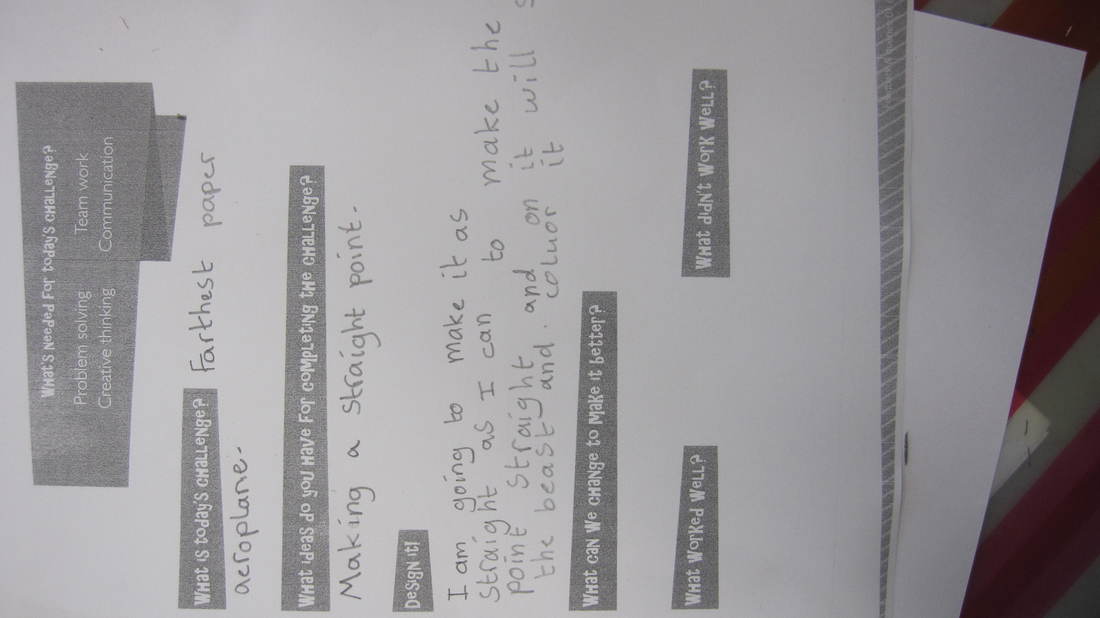 What's needed for today's challenge?
Problem solving Team work
Creative thinking Communication
What is today's challenge? Farthest paper
aeroplane.
What ideas do you have for completing the challenge?
Making a straight point.
Design it!
I am going to make it as
straight as I can to make the
point straight and on it will s
the beast and. coluor it
What can we change to make it better?
What worked well? What didn't work well?